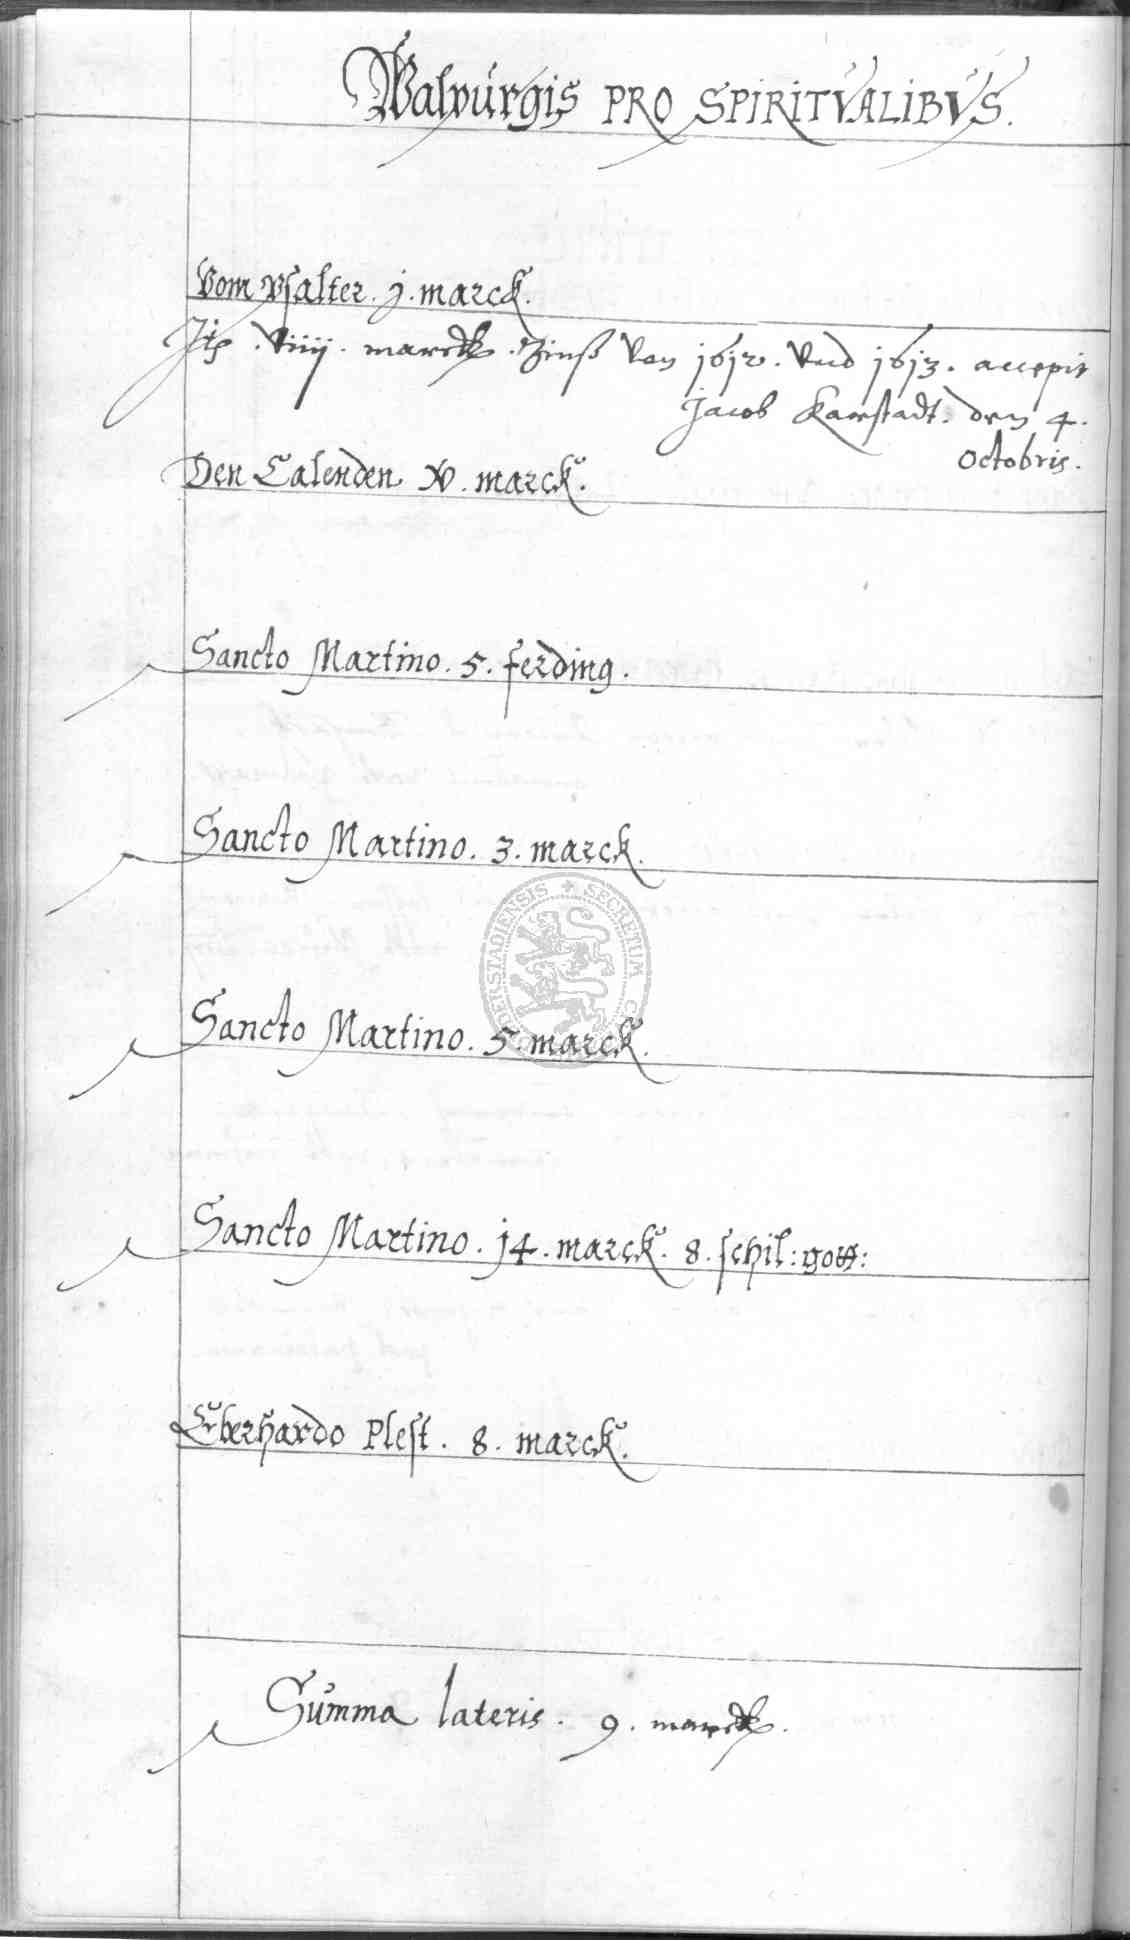 Walpurgis PRO SPIRITVALIBVS.
Vom Psalter. j. marck.
Jtem viiij. marck. Zinß von 1612. vnd 1613. accepit
Jacob Karstadt. den 4.
Octobris.
Den Calenden xv. marck.
Sancto Martino. 5. ferding.
Sancto Martino. 3. marck.
SECRETUM
DERSTADIENSIS
Sancto Martino. 5. marck.
Sancto Martino. 14. marck. 8. schil: gott:
Eberhardo Plest. 8. marck.
Summa lateris. 9. marck.